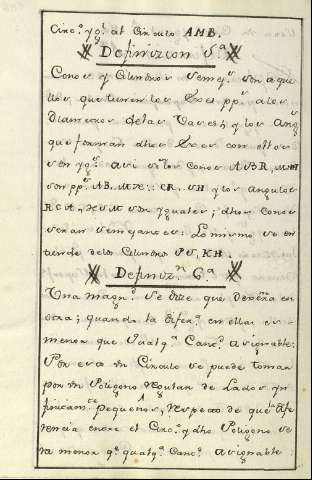 Circ.º yg.l al Circulo AMB.
Definizion 5.ª
Conos y Cilindros Semej.s son aque
llos, que tienen los Exes pp.s a los
Diametros de las Vases; y los Ang.s
que forman dhos Exes con ellos
son yg.s asi si los Conos ABR, MNH
son pp.s AB, MN :: CR, VH y los angulos
RCA, HVM son yguales; dhos Conos
seran semejantes: Lo mismo se en
tiende de los Cilindros PV, KH.
Definiz.n 6.ª
Una magn.d se dize que degenera en
otra; quando la difer.a en ellas es
menor que qualq.a Cant.d asignable:
Por eso un Circulo se puede tomar
por un Poligono Regular de Lados yn
finitam.te pequeños, Respecto de que la dife
rencia entre el Circ.º y dho Poligono se
ra menor q.e qualq.a Cant.d asignable: